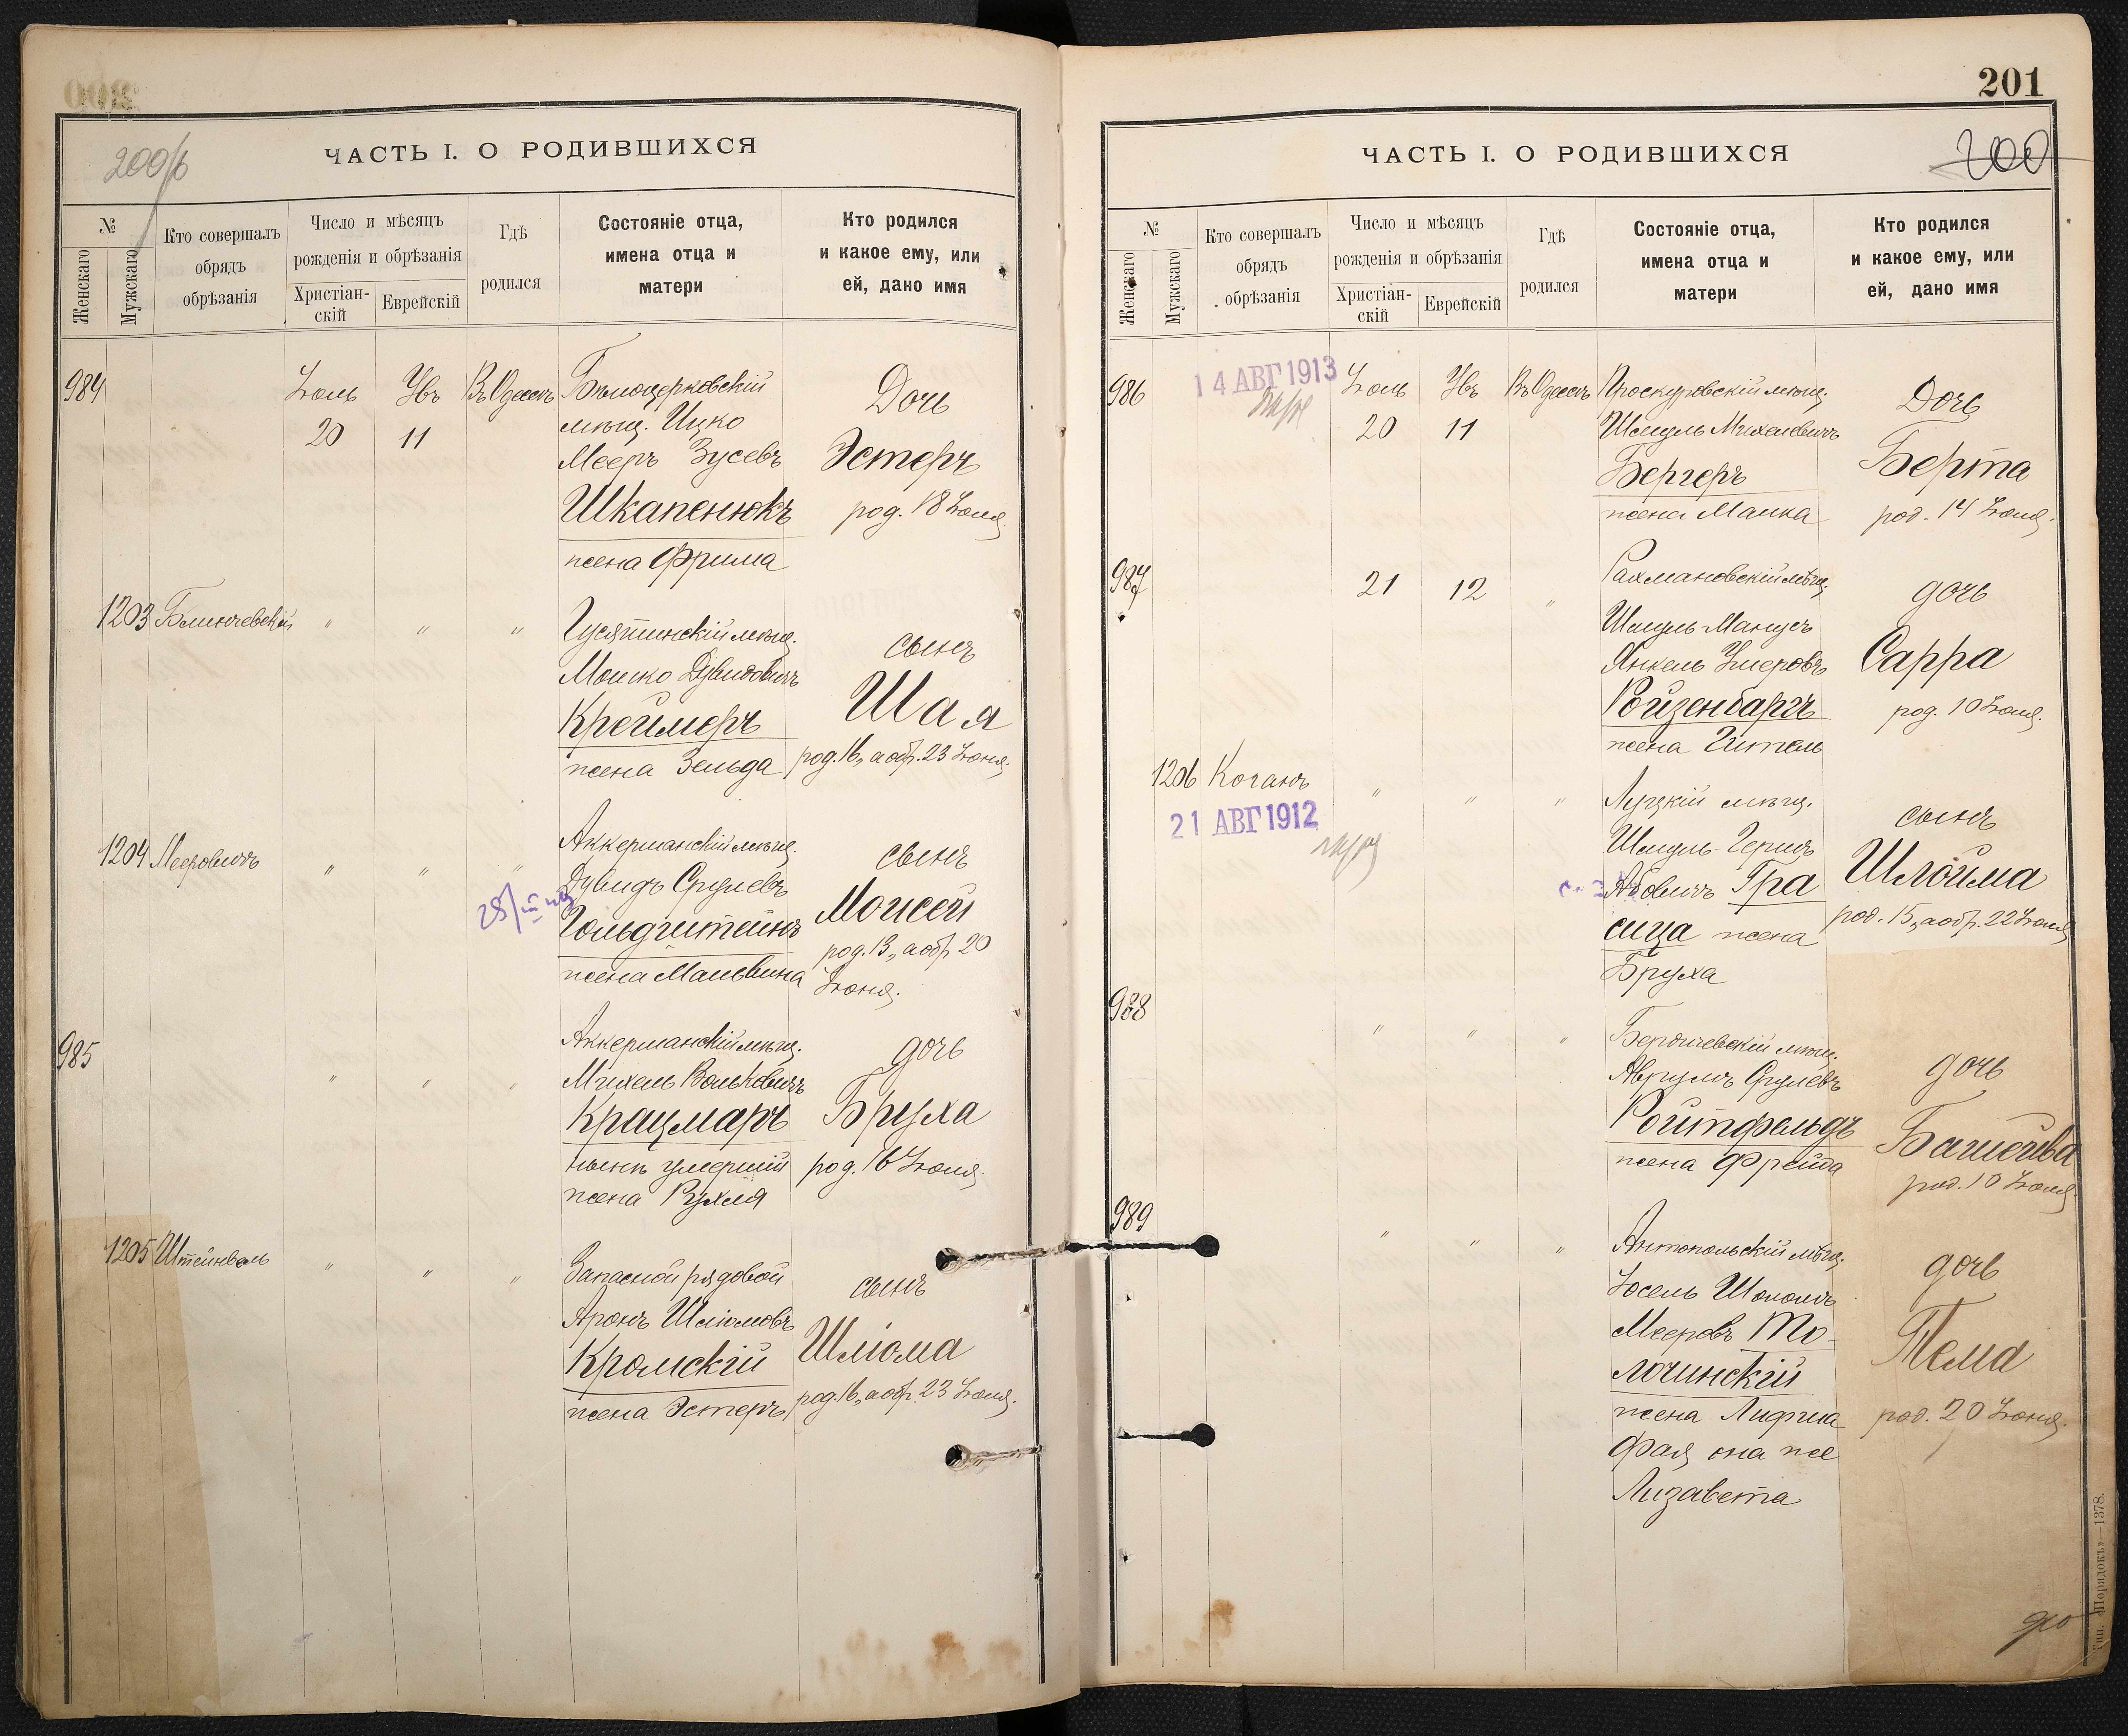 200/б
ЧАСТЬ I. О РОДИВШИХСЯ
№
Женскаго
Мужскаго
Кто совершалъ
обрядъ
обрѣзанія
Число и мѣсяцъ
рожденія и обрѣзанія
Христіан-
скій
Еврейскій
Гдѣ
родился
Состояніе отца,
имена отца и
матери
Кто родился
и какое ему, или
ей, дано имя
984
Іюль
20
Ув
11
Въ Одессѣ
Бѣлоцерковскій
мѣщ. Ицко
Мееръ Зусевъ
Шкапенюкъ
жена Фрима
Дочь
Эстеръ
род. 18 Іюля
1203
Блинчевскій
" " "
Гусятинскій мѣщ.
Мошко Дувидовичъ
Креймеръ
жена Зельда
сынъ
Шая
род. 16, а обр. 23 Іюня.
1204
Мееровичъ
" " "
Аккерманскій мѣщ.
Дувидъ Срулевъ
Гольдштейнъ
жена Мальвина
сынъ
Моисей
род. 13, а обр. 20
Іюня.
985
" " "
Аккерманскій мѣщ.
Михель Вольковичъ
Крацмаръ
нынѣ умершій
жена Рухля
дочь
Бруха
род. 16 Іюля
1205
Штейнволь
" " "
Запасной рядовой
Аронъ Шліомовъ
Кромскій
жена Эстеръ
сынъ
Шліома
род. 16, а обр. 23 Іюля.
201
200
ЧАСТЬ I. О РОДИВШИХСЯ
№
Женскаго
Мужскаго
Кто совершалъ
обрядъ
обрѣзанія
Число и мѣсяцъ
рожденія и обрѣзанія
Христіан-
скій
Еврейскій
Гдѣ
родился
Состояніе отца,
имена отца и
матери
Кто родился
и какое ему, или
ей, дано имя
986
14 АВГ 1913
Іюль
20
Ув
11
Въ Одессѣ
Проскуровскій мѣщ.
Шмуль Михелевичъ
Бергеръ
жена Малка
Дочь
Берта
род. 14 Іюля.
987
21
12
"
Рахмановскій мѣщ.
Шмуль Манусъ
Янкель Умеровъ
Ройзенбаргъ
жена Гитель
дочь
Сарра
род. 10 Іюля.
1206
Коганъ
21 АВГ 1912
" " "
Луцкій мѣщ.
Шмуль-Гершъ
Абовичъ Гра
сица жена
Бруха
сынъ
Шлойма
род. 15, а обр. 22 Іюля
988
" " "
Бердичевскій мѣщ.
Аврумъ Срулевъ
Ройтфельдъ
жена Фрейда
дочь
Башейва
род. 10 Іюля
989
" " "
Антопольскій мѣщ.
Іосель Шоломъ
Мееровъ То-
лочинскій
жена
Фая она же
Лизавета
дочь
Тема
род. 20 Іюня.
Тип. «Порядокъ»—1378.